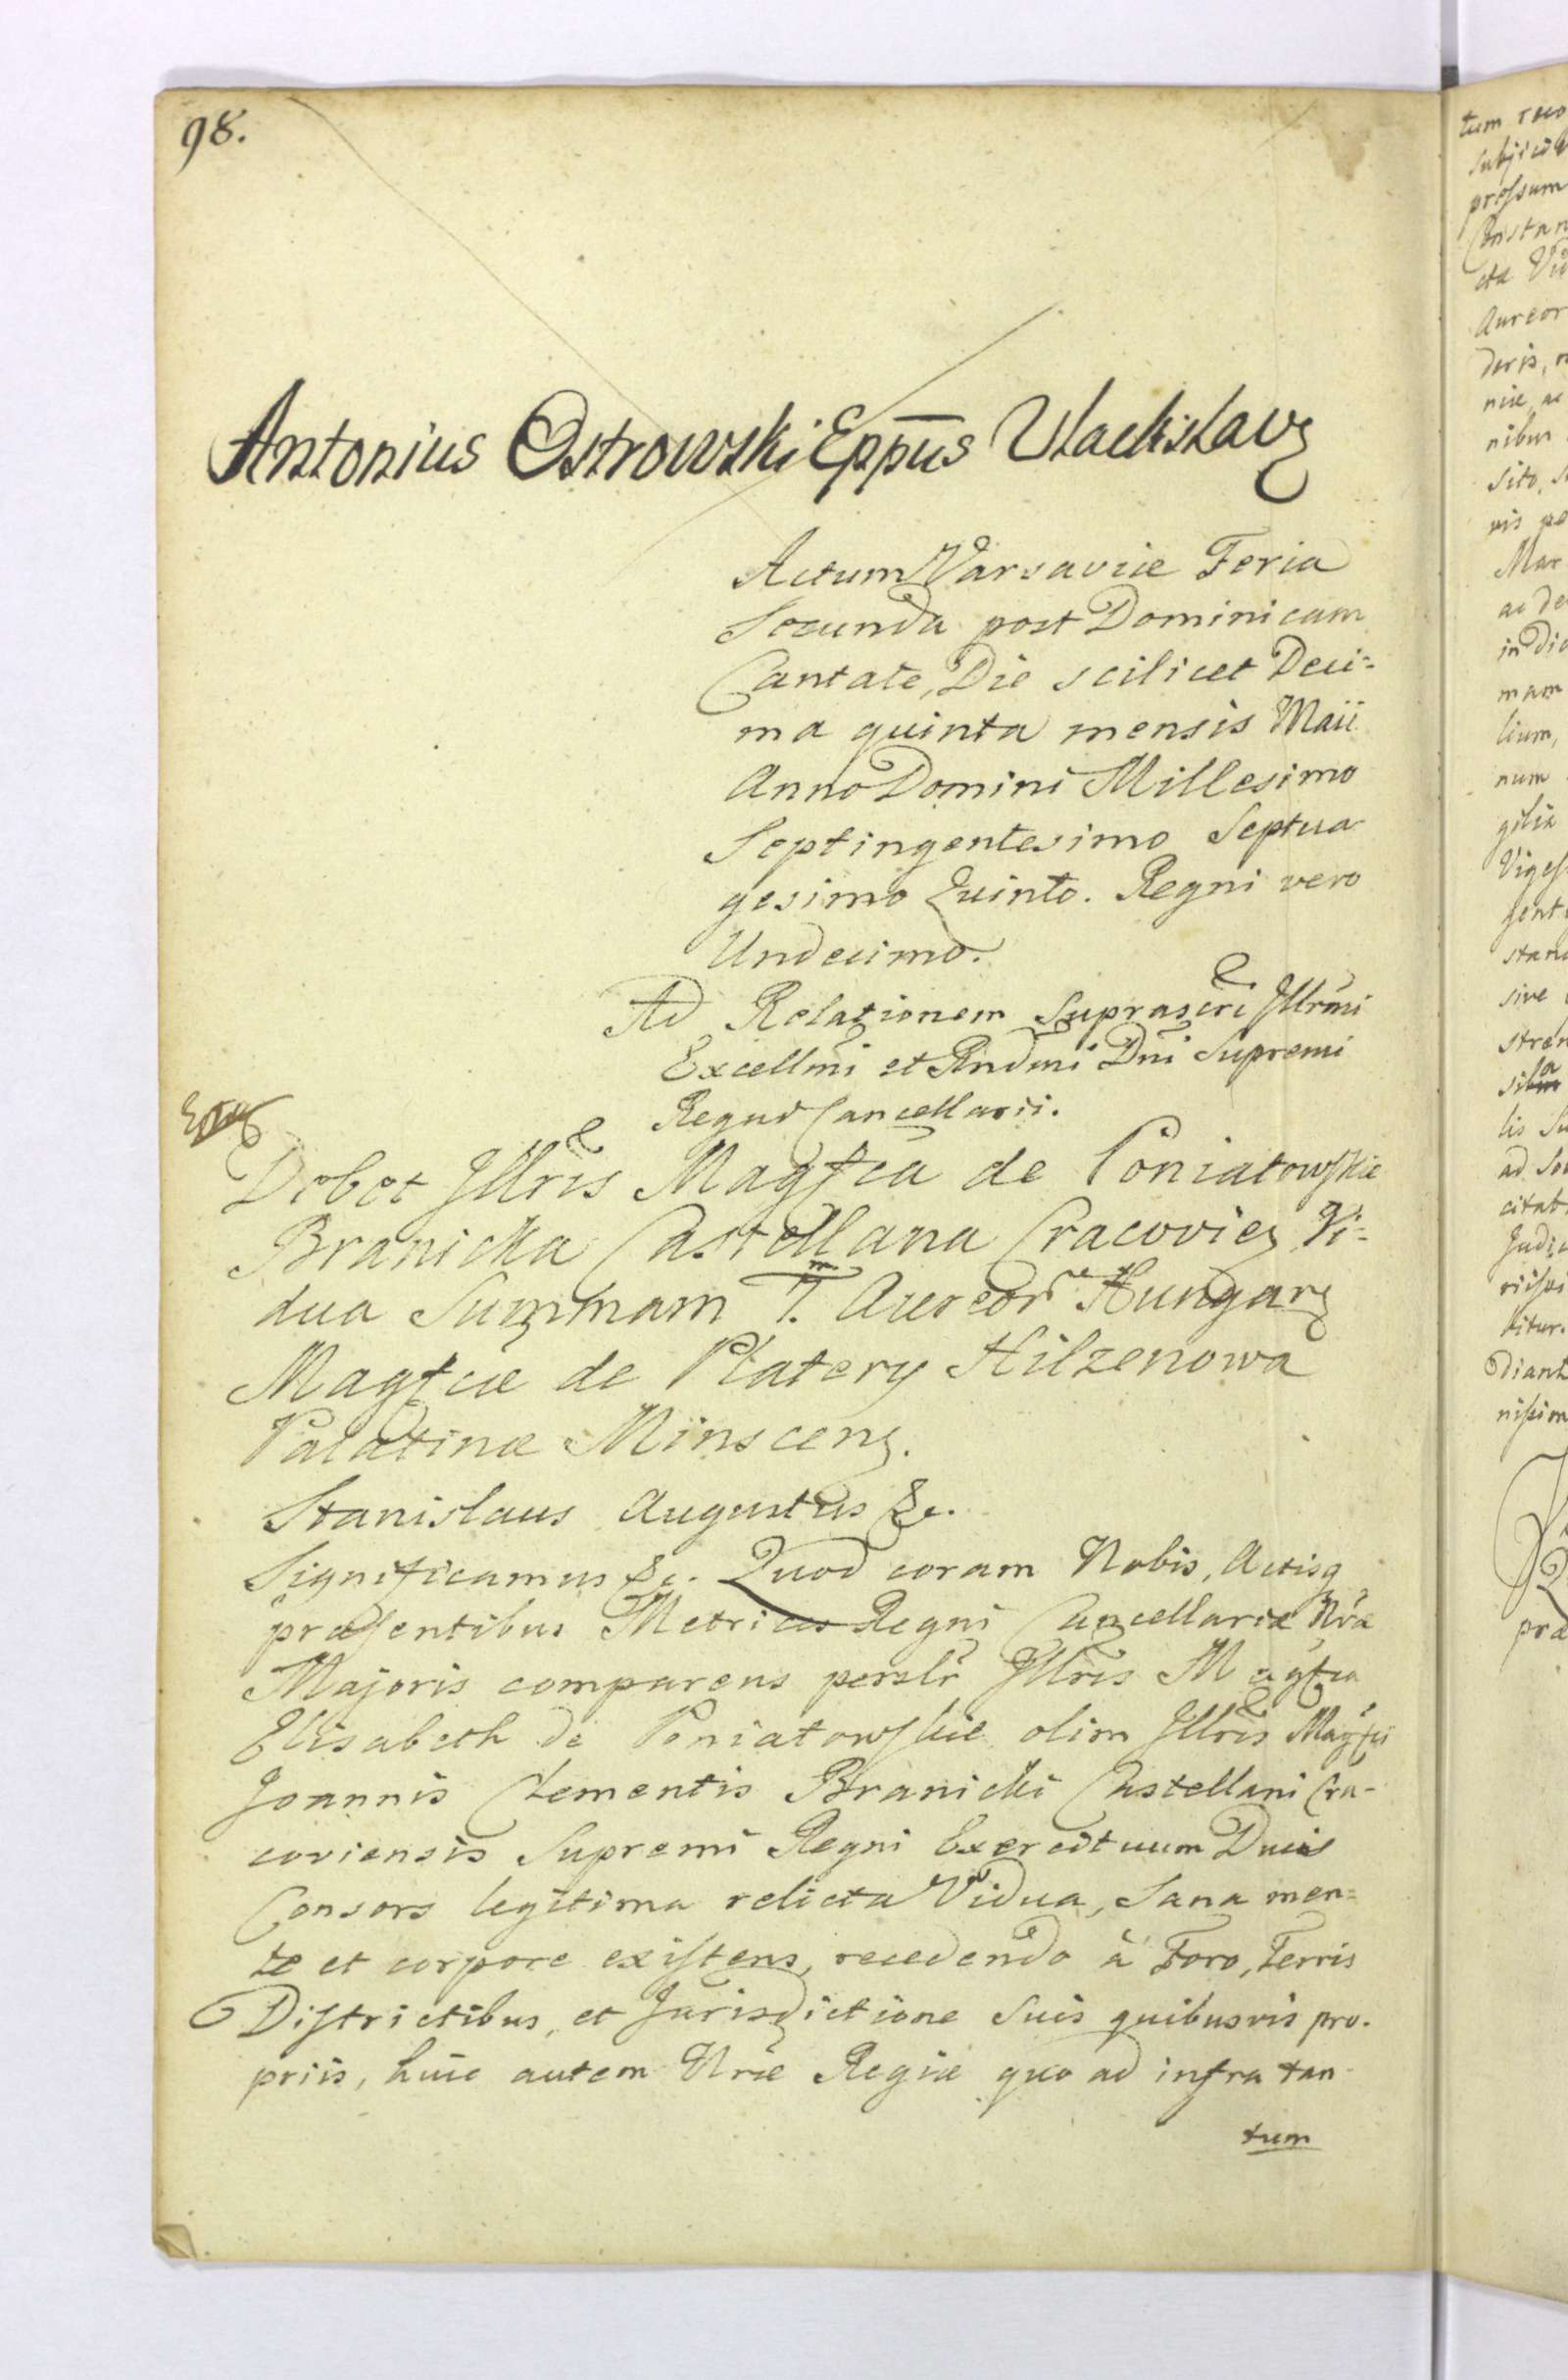 98.
Antonius Ostrowski Eppūs Vladislavȝ
Actum Varsaviæ Feria
Secunda post Dominicam
Cantate, Die scilicet Deci=
ma quinta mensis Maii
Anno Domini Millesimo
Septingentesimo Septua
gesimo Quinto. Regni vero
Undecimo.
Ad Relationem Suprascri Illrmi
Excellmi et Rndmi Dni Supremi
Regni Cancellarii.
Debet Illris Magfca de Poniatowskie
Branicka Castellana Cracovieȝ Vi=
dua Summam T. Aureor Hungarȝ
Magfcæ de Platery Hilzenowa
Palatinæ Minscenȝ.
Stanislaus Augustus &c.
Significamus &c. Quod coram Nobis, Actisq
præsentibus Metrices Regni Cancellariæ Nræ
Majoris comparens persлr Illris Magfca
Elisabeth de Poniatowskie olim Illris Magfci
Joannis Clementis Branicki Castellani Cra-
coviensis Supremi Regni Exercituum Ducis
Consors legitima relicta Vidua, Sana men=
te et corpore existens, recedendo à Foro, Terris
Districtibus, et Jurisdictione Suis quibusvis pro-
priis, huic autem Nræ Regiæ quo ad infra tan-
tum